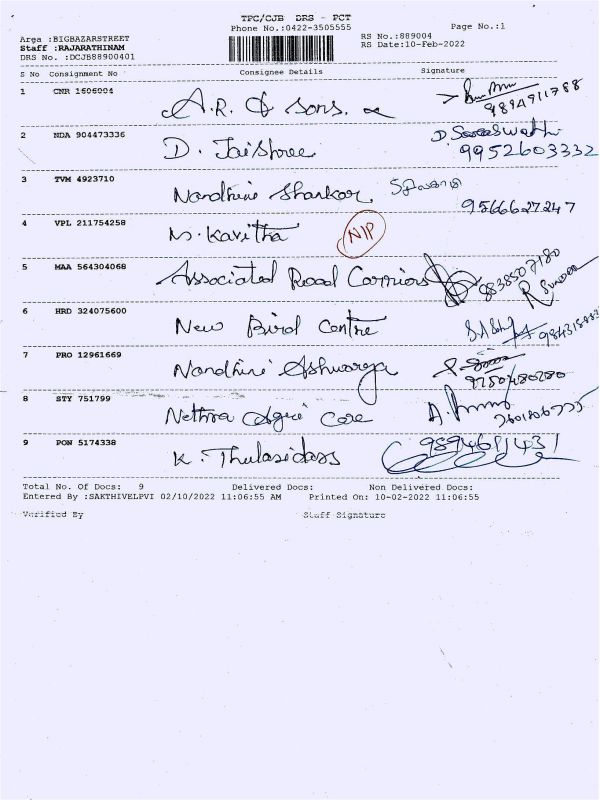 TPC/CJB DRS - PCT
Phone No.:0422-3505555
Page No.:1
Area :BIGBAZARSTREET
RS No.:889004
Staff :RAJARATHINAM
RS Date:10-Feb-2022
DRS No. :DCJB88900401
S No Consignment No Consignee Details Signature
1 CNR 1606004 A.R. & Sons.
9894711788
2 NDA 904473336 D. Jaishree D. Saraswathi
9952603332
3 TVM 4923710 Nandhini Shankar.
9566627247
4 VPL 211754258 M. Kavitha NIP
5 MAA 564304068 Associated Road Carriers 9838507180
6 HRD 324075600 New Bird Centre
7 PRO 12961669 Nandhini Ashwarya
9750480280
8 STY 751799 Nethra Agri Care
9 PON 5174338 K. Thulasidass 9894611431
Total No. Of Docs: 9 Delivered Docs: Non Delivered Docs:
Entered By :SAKTHIVELPVI 02/10/2022 11:06:55 AM Printed On: 10-02-2022 11:06:55
Verified By Staff Signature